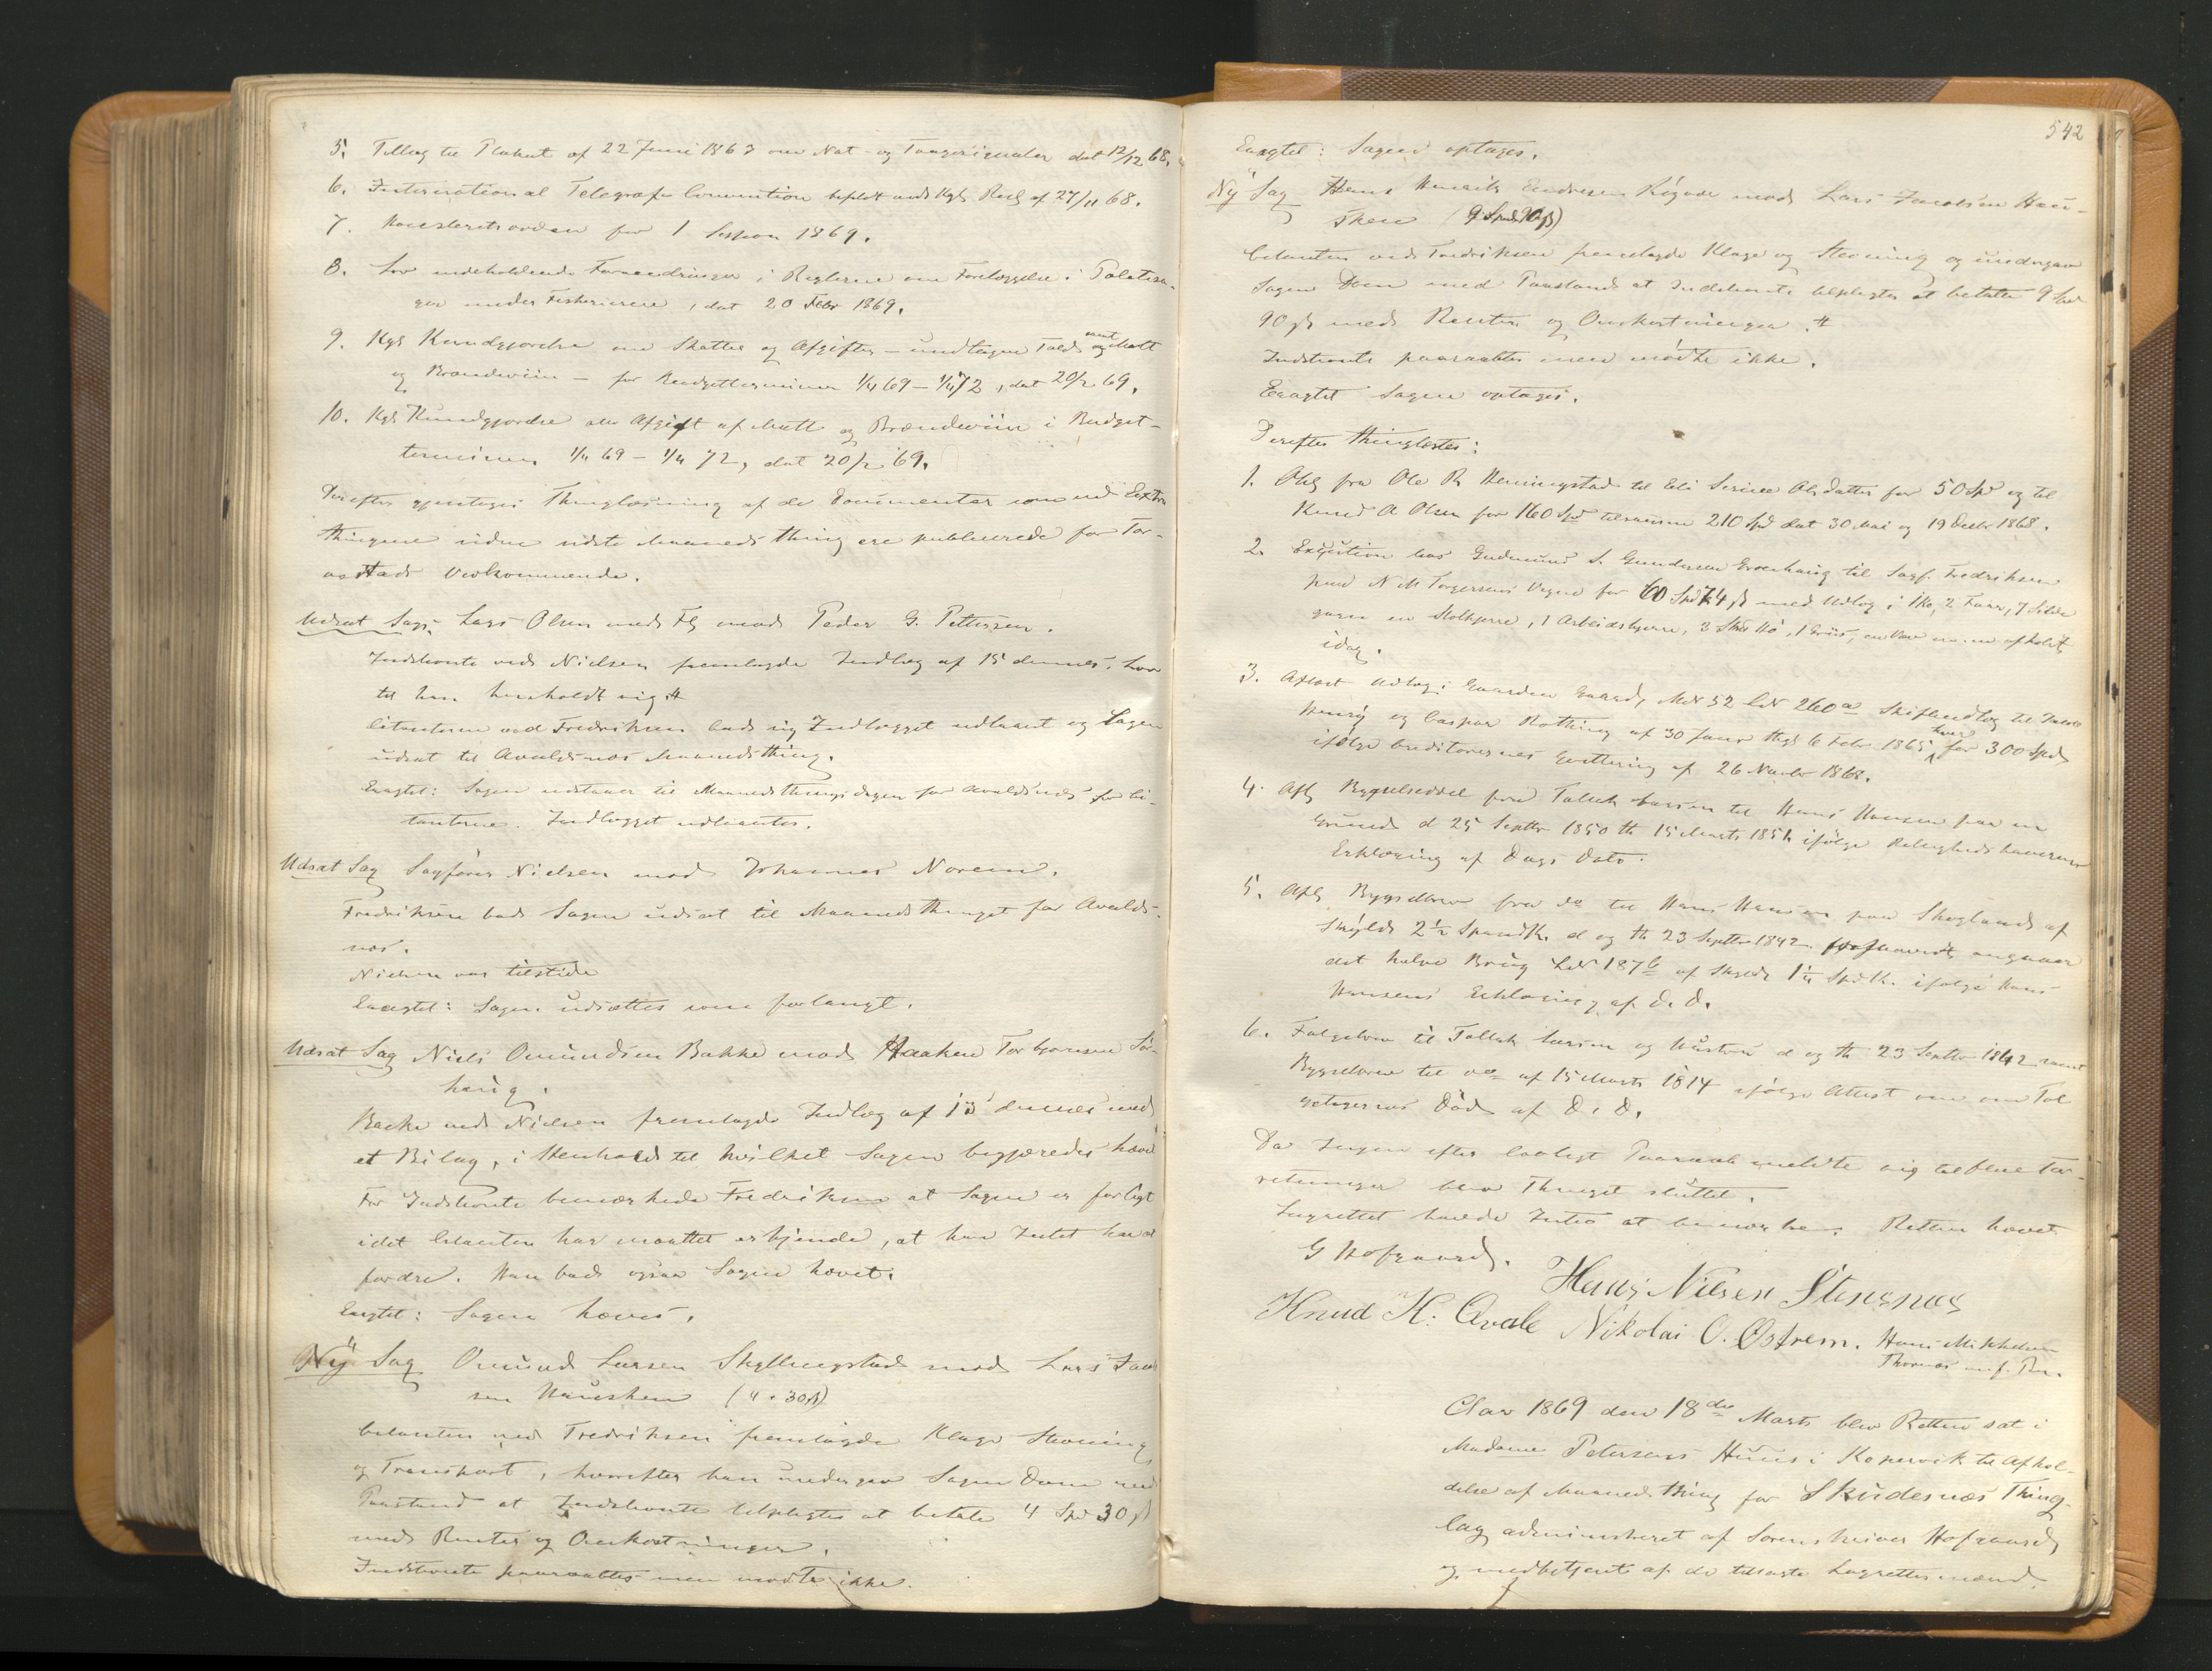 5. Tillæg til Plakat af 22 Juni 1863 om Nat- og Taagesignaler dat 12/12 68.
6. International Telegraf Convention ved Kgl Resl af 27/11 68.
7. for 1 Session 1869.
8. Lov indeholdende Forandringer i Reglerne om Forelæggelse i Politisa-
ger under Fiskerierne, dat 20 Febr 1869.
9. Kgl Kundgjørelse om Skatter og Afgifter - undtagen Told samt Malt
og Brændeviin - for Budgetterminen 1/4 69 - 1/4 72, dat 20/2 69.
10. Kgl Kundgjørelse om Afgift af Malt og Brændeviin i Budget-
terminen 1/4 69 - 1/4 72, dat 20/2 69.
Derefter gjentoges Thinglæsning af de Documenter som ved Extra
thingene siden sidste Maanedsthing ere publicerede for Tor-
vestads Vedkommende.
Udsat Sag. Lars Olsen med Fl mod Peder G. Pettersen.
Indstevnte ved Nielsen fremlagde Indlæg af 15 dennes, hvor
til han henholdt sig #
Citanterne ved Fredriksen bad sig Indlægget udlaant og Sagen
udsat til Avaldsnæs Maanedsthing.
Eragtet: Sagen udstaaer til Maanedsthingsdagen for Avaldsnæs for Ci-
tanterne. Indlægget udlaantes.
Udsat Sag Sagfører Nielsen mod Johannes Norem.
Fredriksen bad Sagen udsat til Maanedsthinget for Avalds-
næs.
Nielsen var tilstede
Eragtet: Sagen udsættes som forlangt.
Udsat Sag Niels Omundsen Bakke mod Haaken Torbjørnsen Sø-
haug.
Bakke ved Nielsen fremlagde Indlæg af 13 dennes med
et Bilag, i Henhold til hvilket Sagen begjæredes hævet
For Indstevnte bemærkede Fredriksen at Sagen er forligt
idet Citanten har maattet erkjende, at han Intet har at
fordre. Han bad ogsaa Sagen hævet.
Eragtet: Sagen hæves.
Ny Sag Omund Larsen Skyllingstad mod Lars Jacob
sen Hausken (4 " 30 ß)
Citanten ved Fredriksen fremlagde Klage Stevning
og Transport, hvorefter han undergav Sagen Dom med
Paastand at Indstevnte tilpligtes at betale 4 Spd 30 ß
med Renter og Omkostninger.
Indstevnte paaraabtes men mødte ikke.
542
Eragtet: Sagen optages.
Ny Sag Hans Henrik Endresen mod Lars Jacobsen Hau-
sken (9 Spd 90 ß)
Citanten ved Fredriksen fremlagde Klage og Stevning og undergav
Sagen Dom med Paastand at Indstevnte tilpligtes at betale 9 Spd
90 ß med Renter og Omkostninger. #
Indstevnte paaraabtes men mødte ikke.
Eragtet Sagen optages.
Derefter thinglæstes:
1. Obl fra Ole R Henningstad til Eli Serine Olsdatter for 50 Spd og til
Knud A Olsen for 160 Spd tilsammen 210 Spd dat 30 Mai og 19 Decbr 1868.
2. Execution hos Gudmund S. Gundersen til Sagf. Fredriksen
paa N M Torgersens Vegne for 60 Spd 74 ß med Udlæg i 1 Ko, 2 Faar, 7
en Stolkjerre, 1 Arbeidskjerre, 3 Hø, 1 afholdt
idag.
3. Aflæst Udlæg i Gaarden Gaard, MN 52 LN 260 a Skifteudlæg til
og Caspar Rothing af 30 Janr thgl 6 Febr 1865 hver for 300 Spd
ifølge Creditorernes Qvittering af 26 Novbr 1868.
4. Afl Bygselseddel fra Tollak Larsen til Hans Hansen paa en
Grund d 25 Septbr 1850 th 15 Marts 1851 ifølge Rettighedshaverens
Erklæring af Dags Dato.
5. Afl Bygselbrev fra do til Hans Hansen paa Skogland af
Skyld 2 1/2 Spand K. d og th 23 Septbr 1842 forsaavidt angaaer
det halve Brug LN 187 b af Skyld 1 1/4 Spd K. ifølge Hans
Hansens Erklæring af D. D.
6. Følgebrev til Tollak Larsen og Hustru d og th 23 Septbr 1842 samt
Bygselbrev til do af 15 Marts 1814 ifølge Attest om om Føl
getagernes Død af D. D.
Da Ingen efter lovligt Paaraab meldte sig til flere For-
retninger blev Thinget sluttet.
Lagrettet havde Intet at bemærke. Retten hævet
G Hofgaard.
Hans Nilsen Stensnæs
Knud K: Qvale Nikolai O. Østrem. Hans Mikkelsen
Thornæs m. f. Pen.
Aar 1869 den 18de Marts blev Retten sat i
Madame Petersens Huus i Kopervik til Afhol-
delse af Maanedsthing for Skudesnæs Thing-
lag, administreret af Sorenskriver Hofgaard
og medbetjent af de tilsagte Lagrettesmænd.